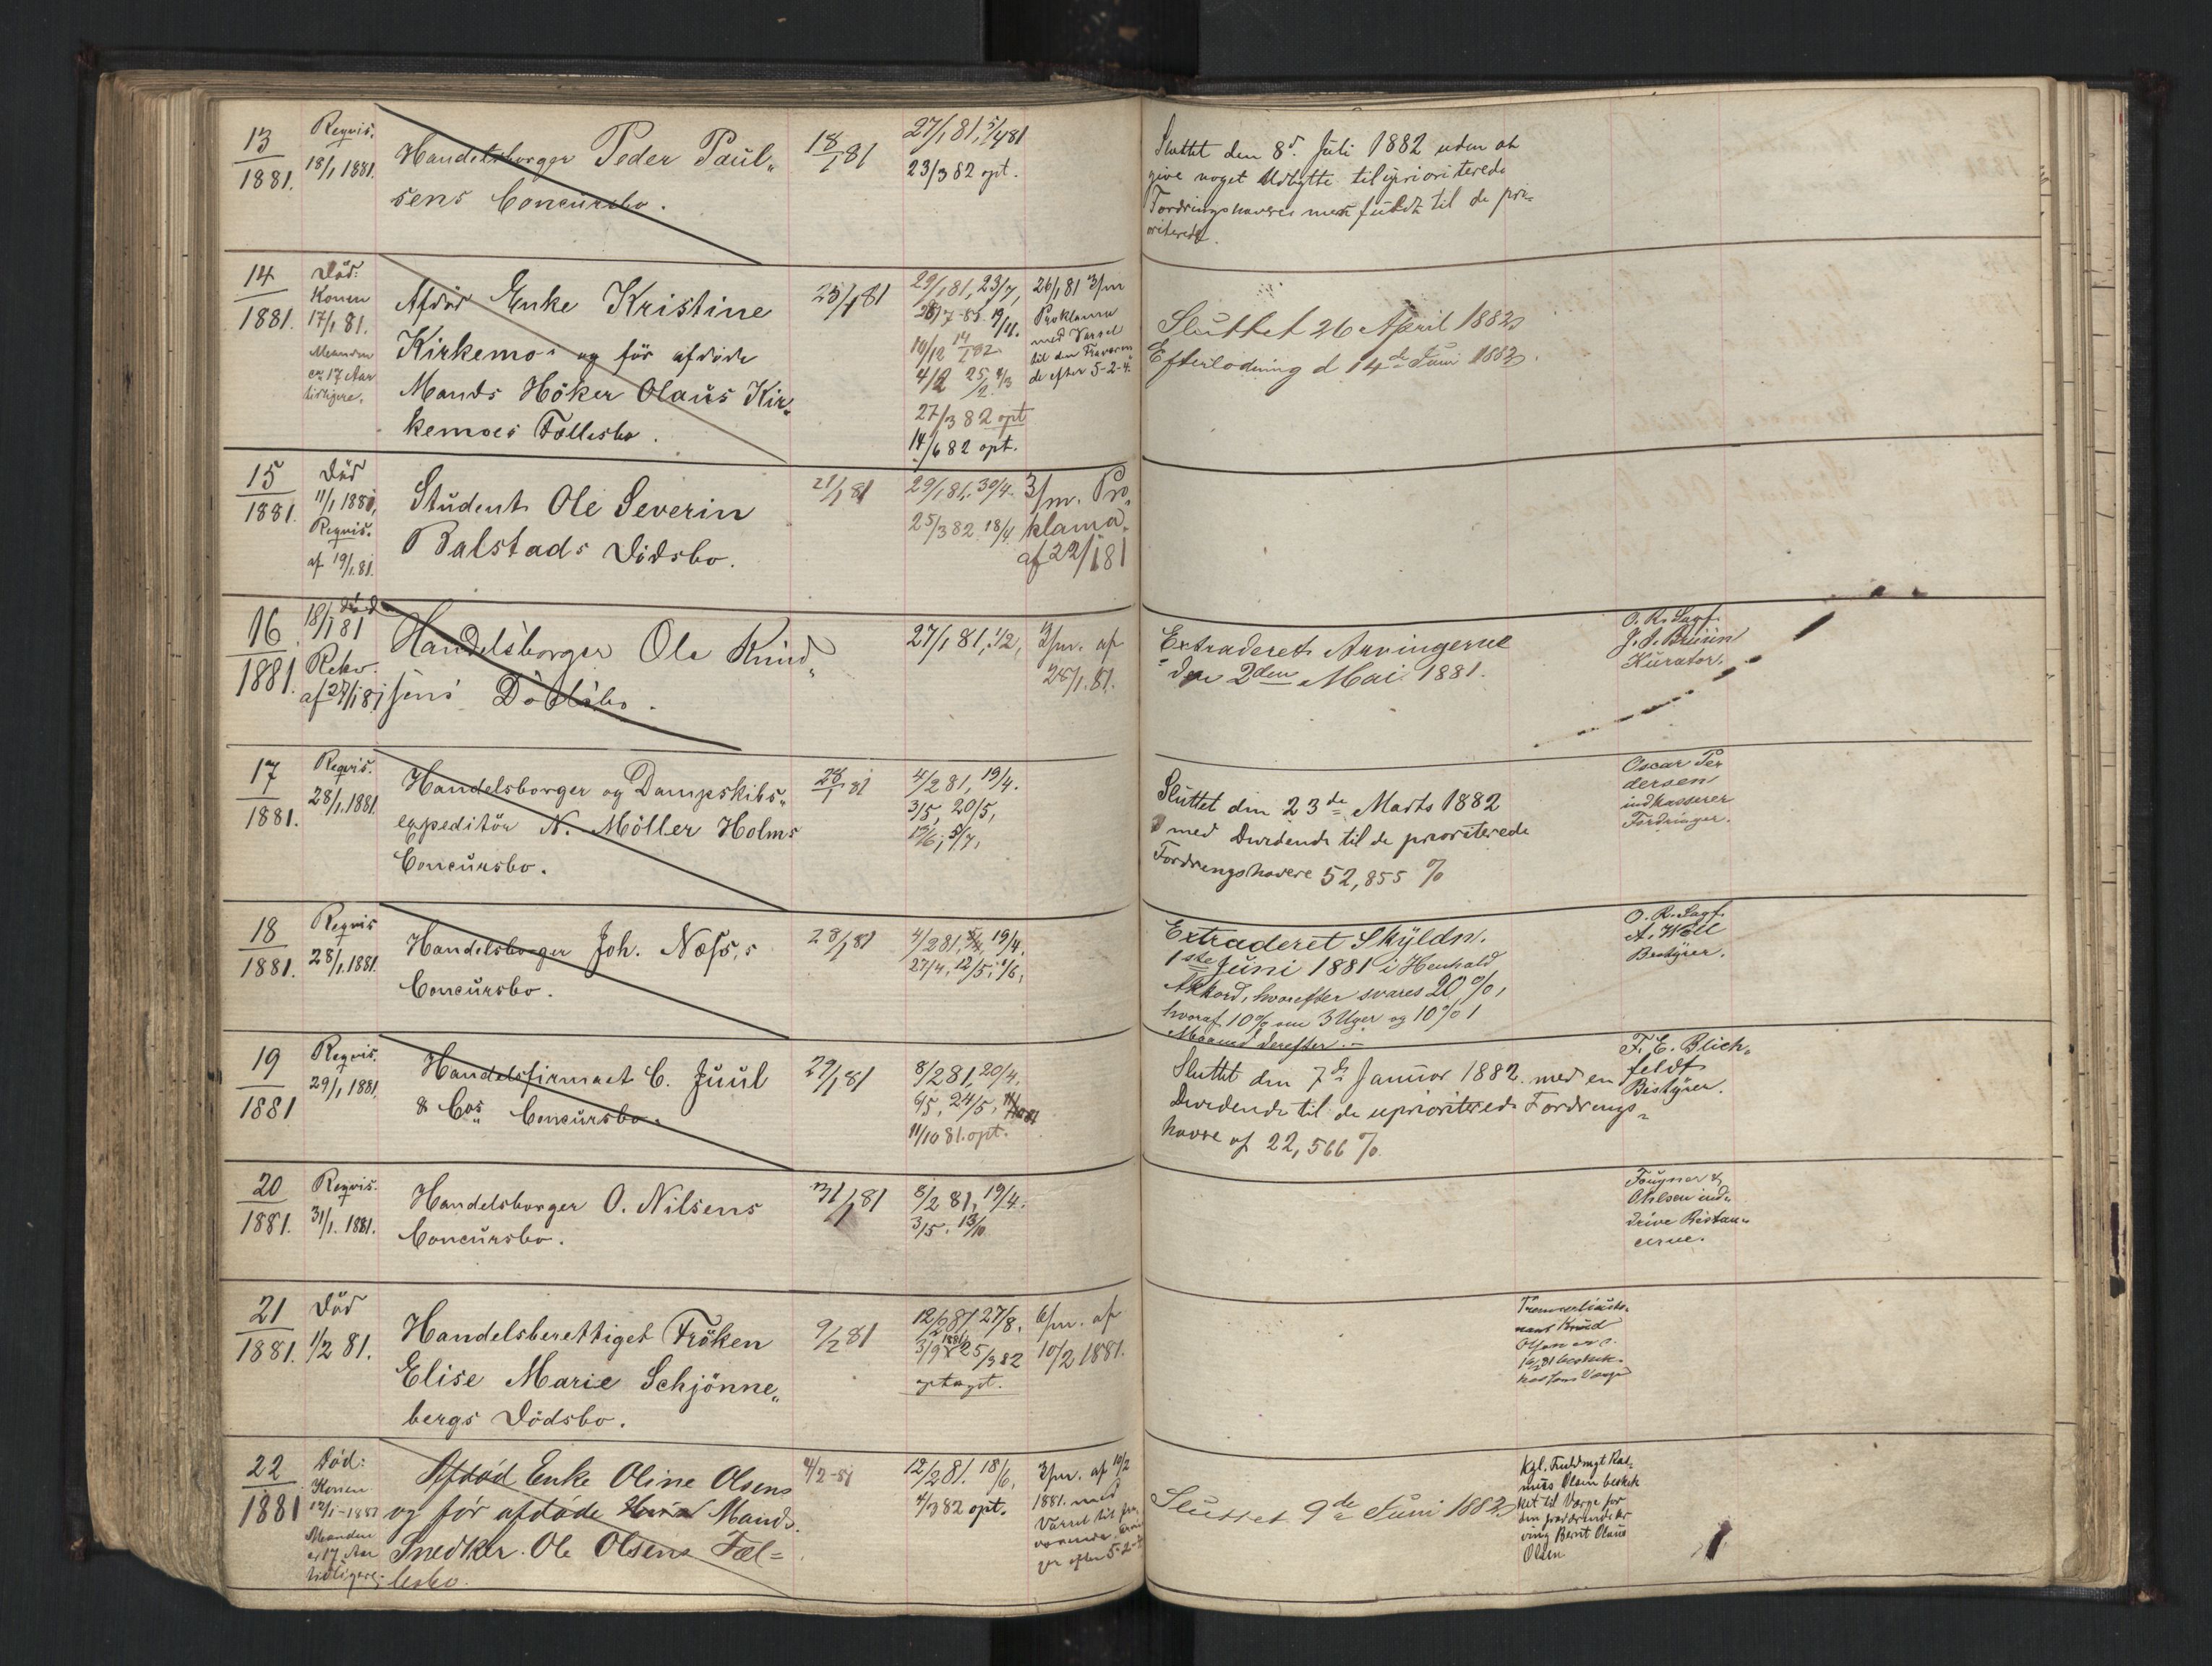 13
1881.
Reqvis.
18/1 1881.
Handelsborger Peder Paul„
sens Concursbo.
18/1 81
27/1 81, 5/4 81
23/3 82 opt.
Sluttet den 8d. Juli 1882 uden at
give noget Udbytte til uprioriterede
Fordringshavere men fuldt til de pri=
oriterede.
14
1881.
Död:
Konen
17/1 81.
Manden
ca 17 Aar
tidligere.
Afdöd Enke Kristine
Kirkemos og för afdöde
Mands Höker Olaus Kir„
kemoes Fællesbo.
25/1 81
29/1 81, 23/7,
14/1 82
4/2 25/2 4/3
27/3 82 opt
14/6 82 opt.
26/1 81 3/m
Proklama
med Varsel
til den Fraværen
de efter 5-2-4.
Sluttet 26 April 1882
Efterlodning d 14de Juni 1882.
15
1881.
Död
11/1 1881,
Reqvis.
af 19/1 81.
Student Ole Severin
Balstads Dödsbo.
21/1 81
29/1 81, 30/4.
25/3 82, 18/4
3/m. Pro„
klama
af 22/1 81
16
1881.
död
18/1 81
Rekv.
af 27/1 81
Handelsborger Ole Knud„
sens Dödsbo.
27/1 81, 1/2,
3/m. af
28/1. 81.
Extraderet Arvingerne
den 2den Mai 1881.
O. R. Sagf.
J. J. Bruun
Kurator.
17
1881.
Reqvis.
28/1. 1881.
Handelsborger og Dampskibs„
expeditör N. Möller Holms
Concursbo.
28/1 81
4/2 81, 19/4.
3/5, 20/5,
17/6, 5/7,
Sluttet den 23de Marts 1882
med Dividende til de prioriterede
Fordringshavere 52,855 %
Oscar Pe
dersen
indkasserer
Fordringer.
18
1881.
Reqvis
28/1. 1881.
Handelsborger Joh. Næss's
Concursbo.
28/1 81
4/2 81, 19/4.
27/4, 12/5, 1/6,
Extraderet Skyldn.
1ste Juni 1881 i Henhold
Akkord, hvorefter svares 20 %,
hvoraf 10% om 3 Uger og 10% 1
Maaned derefter.
O. R. Sagf.
A. Woll
Bestyrer.
19
1881
Reqvis.
29/1 1881.
Handelsfirmaet C. Juul
& Cos Concursbo.
29/1 81
8/2 81, 20/4.
6/5, 24/5,
11/10 81. opt.
Sluttet den 7de Januar 1882 med en
Dividende til de uprioriterede Fordrings=
havere af 22,566 %.
F. E. Blich„
feldt
Bestyrer.
20
1881.
Reqvis.
31/1. 1881.
Handelsborger O. Nilsens
Concursbo.
31/1 81
8/2 81, 19/4.
3/5. 13/10
Fougner &
Ohlson ind„
drive Restan„
cerne.
21
1881.
Död
1/2 81.
Handelsberettiget Fröken
Elise Marie Schjönne„
bergs Dödsbo.
9/2 81
12/2 81, 27/8.
3/9 1881 25/3 82
optaget.
6/m. af
10/2 1881.
Premierlöite„
nant Knud
22
1881
Död:
Konen
12/1-1881
Manden
ca 17 Aar
tidligere.
Afdöd Enke Oline Olsens
og för afdöde Mands
Snedker Ole Olsens Fæl=
lesbo.
4/2-81
12/2 81. 18/6,
4/3 82 opt.
3/m. af 10/2
1881. med
Varsel til fra„
værende Arvin
ger efter 5-2-4
Sluttet 9de Juni 1882
Kgl. Fuldmgt Ras=
mus Olsen beskik
ket til Værge for
den fraværende Ar
ving Bernt Olaus
Olsen